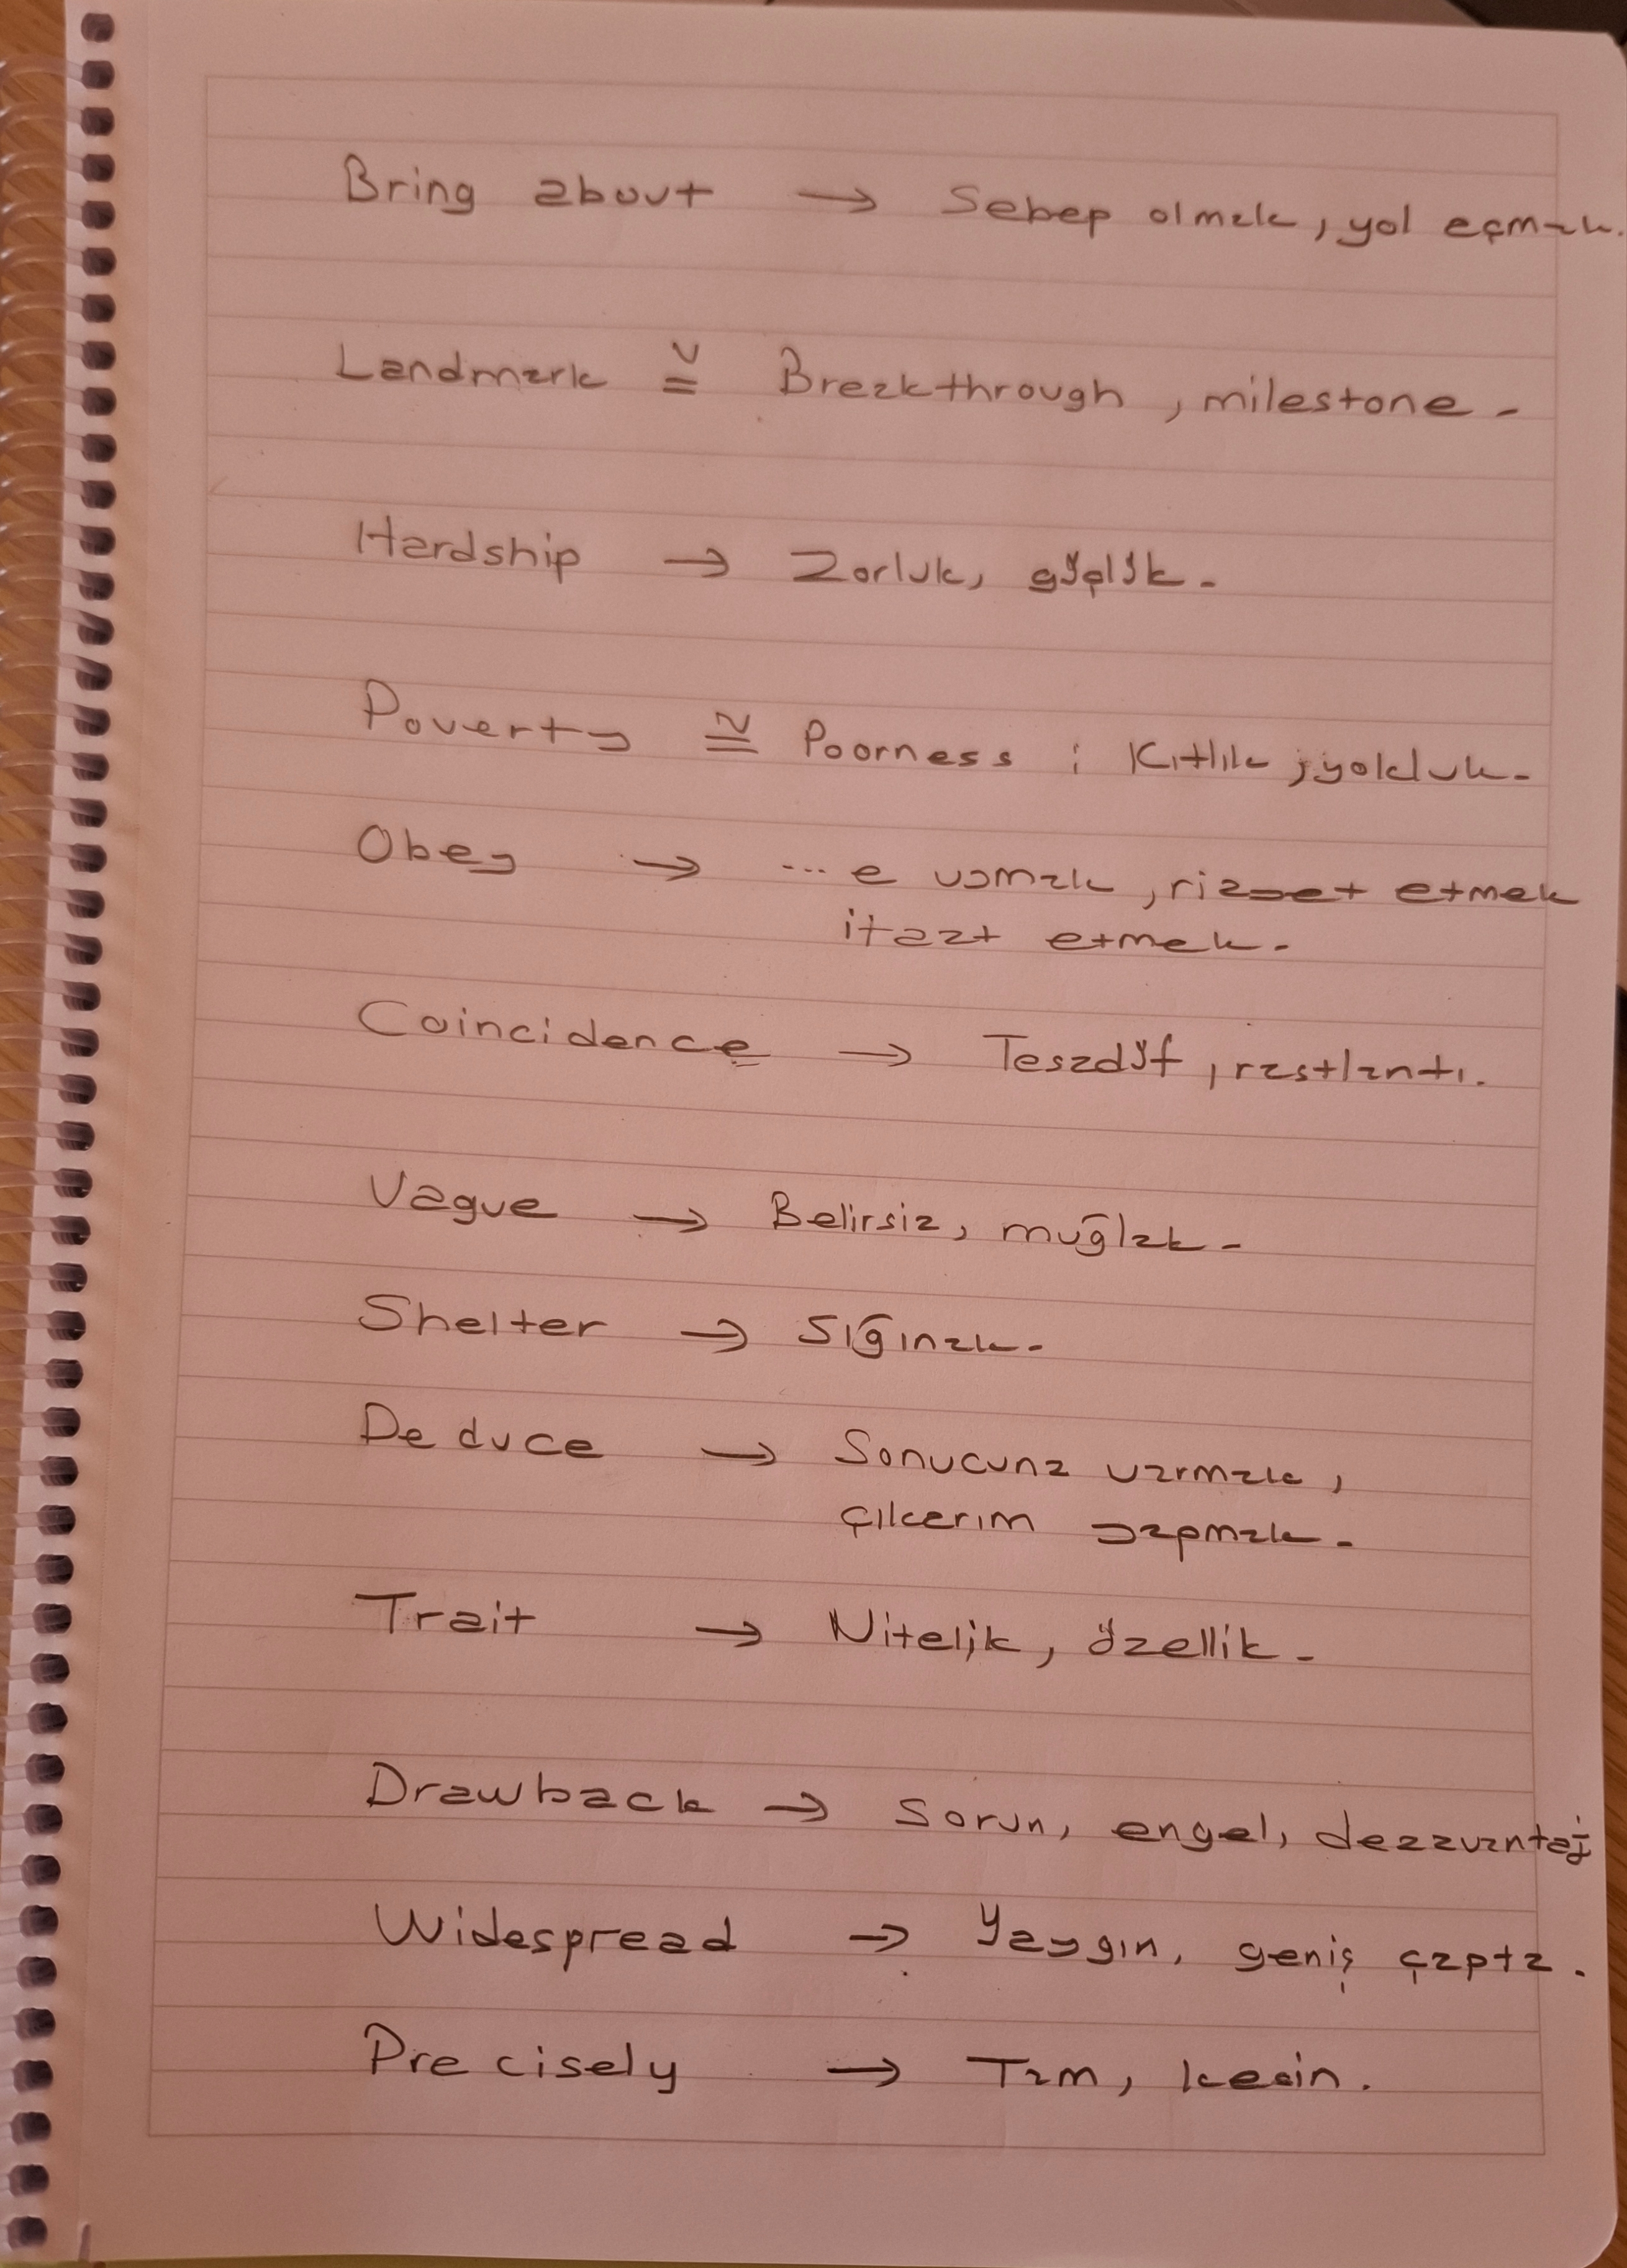 Bring about → Sebep olmak, yol açmak.
Landmark ≅ Breakthrough, milestone.
Hardship → Zorluk, güçlük.
Poverty ≅ Poorness : Kıtlık, yokluk.
Obey → ...e uymak, riayet etmek
itaat etmek.
Coincidence → Tesadüf, rastlantı.
Vague → Belirsiz, muğlak.
Shelter → Sığınak.
Deduce → Sonucuna varmak,
çıkarım yapmak.
Trait → Nitelik, özellik.
Drawback → Sorun, engel, dezavantaj
Widespread → Yaygın, geniş çapta.
Precisely → Tam, kesin.